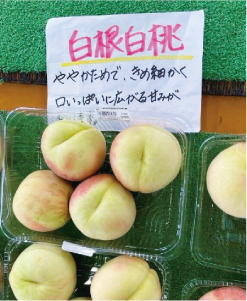 白根白桃
ややかためで、きめ細かく
口いっぱいに広がる甘みが